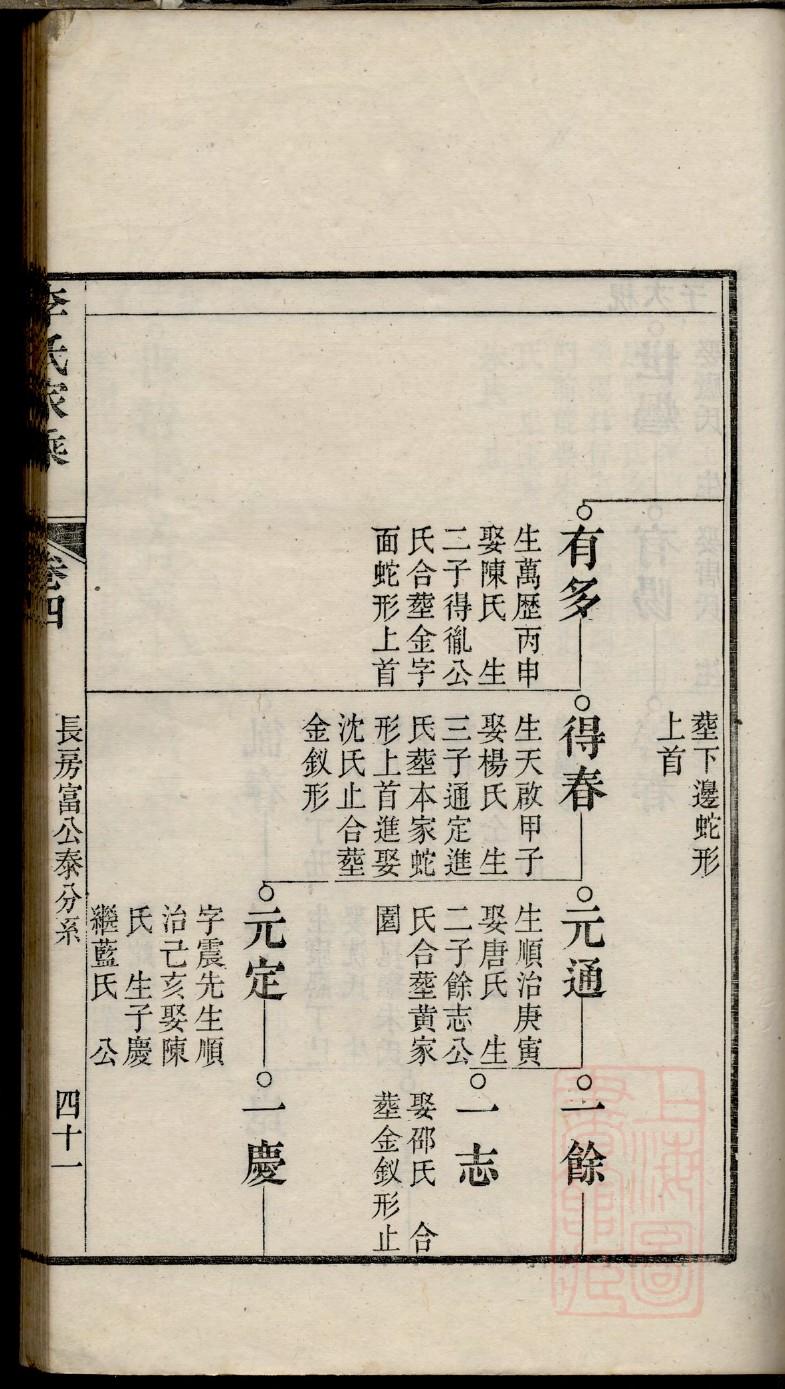 塟下邊蛇形
上首
有多
生萬歷丙申
娶陳氏 生
二子得胤公
氏合塟金字
面蛇形上首
得春
生天啟甲子
娶楊氏 生
三子通定進
氏塟本家蛇
形上首進娶
沈氏止合塟
金釵形
元通
生順治庚寅
娶唐氏 生
二子餘志公
氏合塟黄家
園
一餘
一志
娶邵氏 合
塟金釵形止
元定
字震先生順
治己亥娶陳
氏 生子慶
繼藍氏 公
一慶
李氏家乘
卷四
長房富公泰分系
四十一
上海圖書館藏